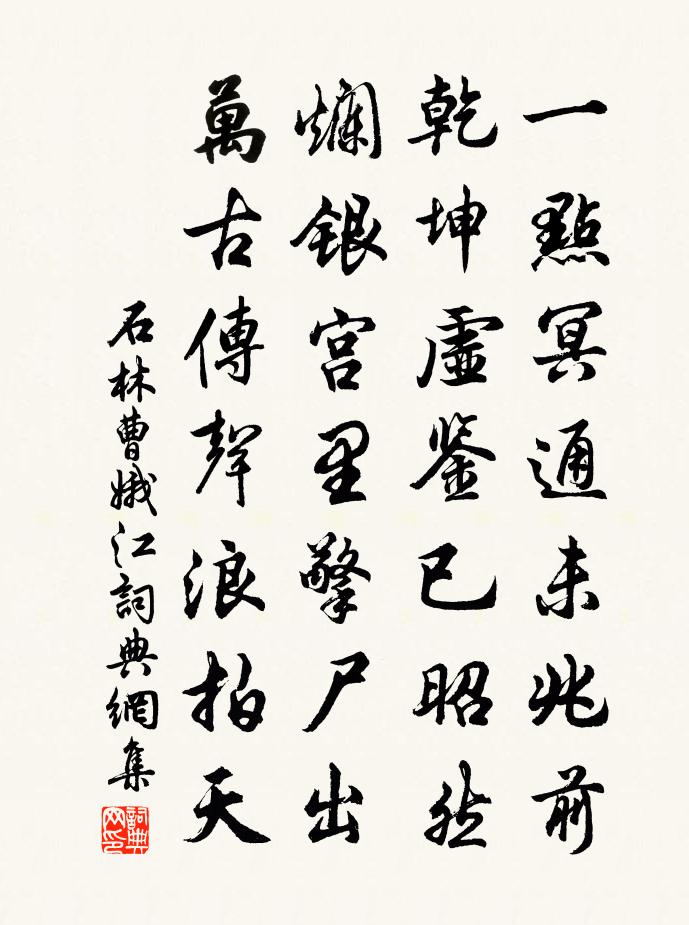 一點冥通未兆前
乾坤虛鉴已昭然
爛銀宮里擎尸出
萬古傳聲浪拍天
石林曹娥江詞典網集
詞典网印